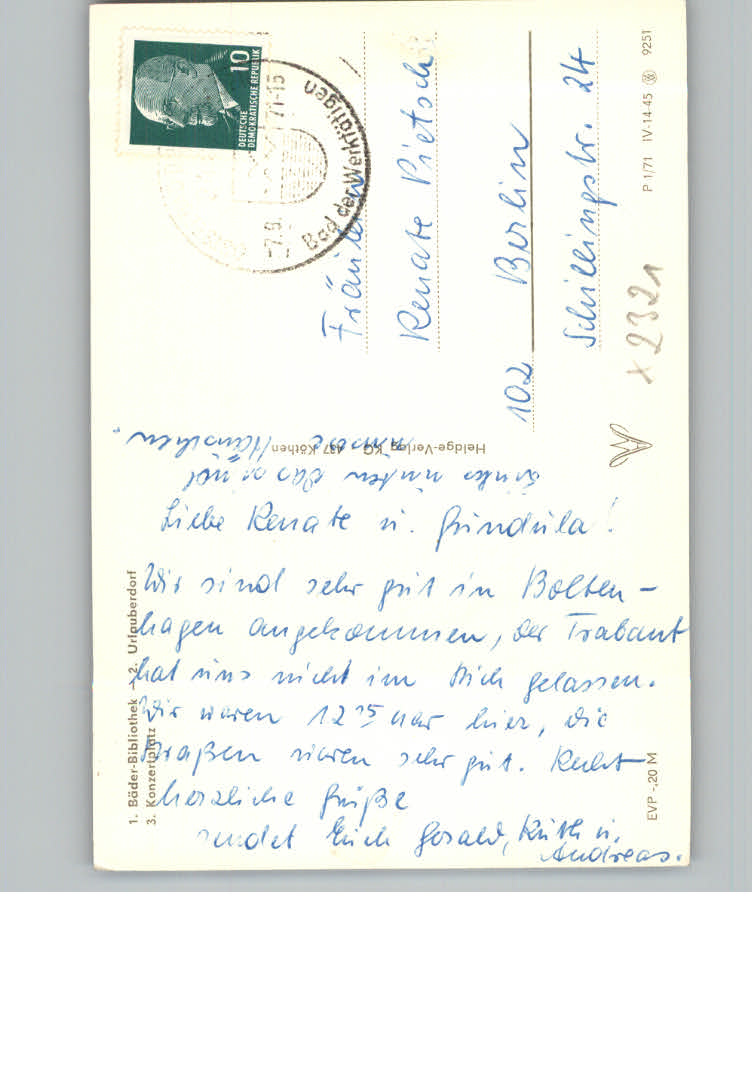 Liebe Renate u. Gündula!
Wir sind sehr gut in Bolten-
hagen angekommen, der Trabant
hat uns nicht im Stich gelassen.
Wir waren 12 15 Uhr hier, die
Straßen waren sehr gut. Recht
herzliche Grüße
sendet Euch Gerald, Ruth u.
Andreas.
links unten das sind
unsere Häuschen"
Fräulein
Renate Pietsch
102 Berlin
Schillingstr. 24
10
DEUTSCHE
DEMOKRATISCHE REPUBLIK
-7.9. 71-15
Bad der Werktätigen
1. Bäder-Bibliothek – 2. Urlauberdorf
3. Konzertplatz
Heldge-Verlag KG 437 Köthen
EVP -,20 M
P 1/71 IV-14-45 9251
x 2321